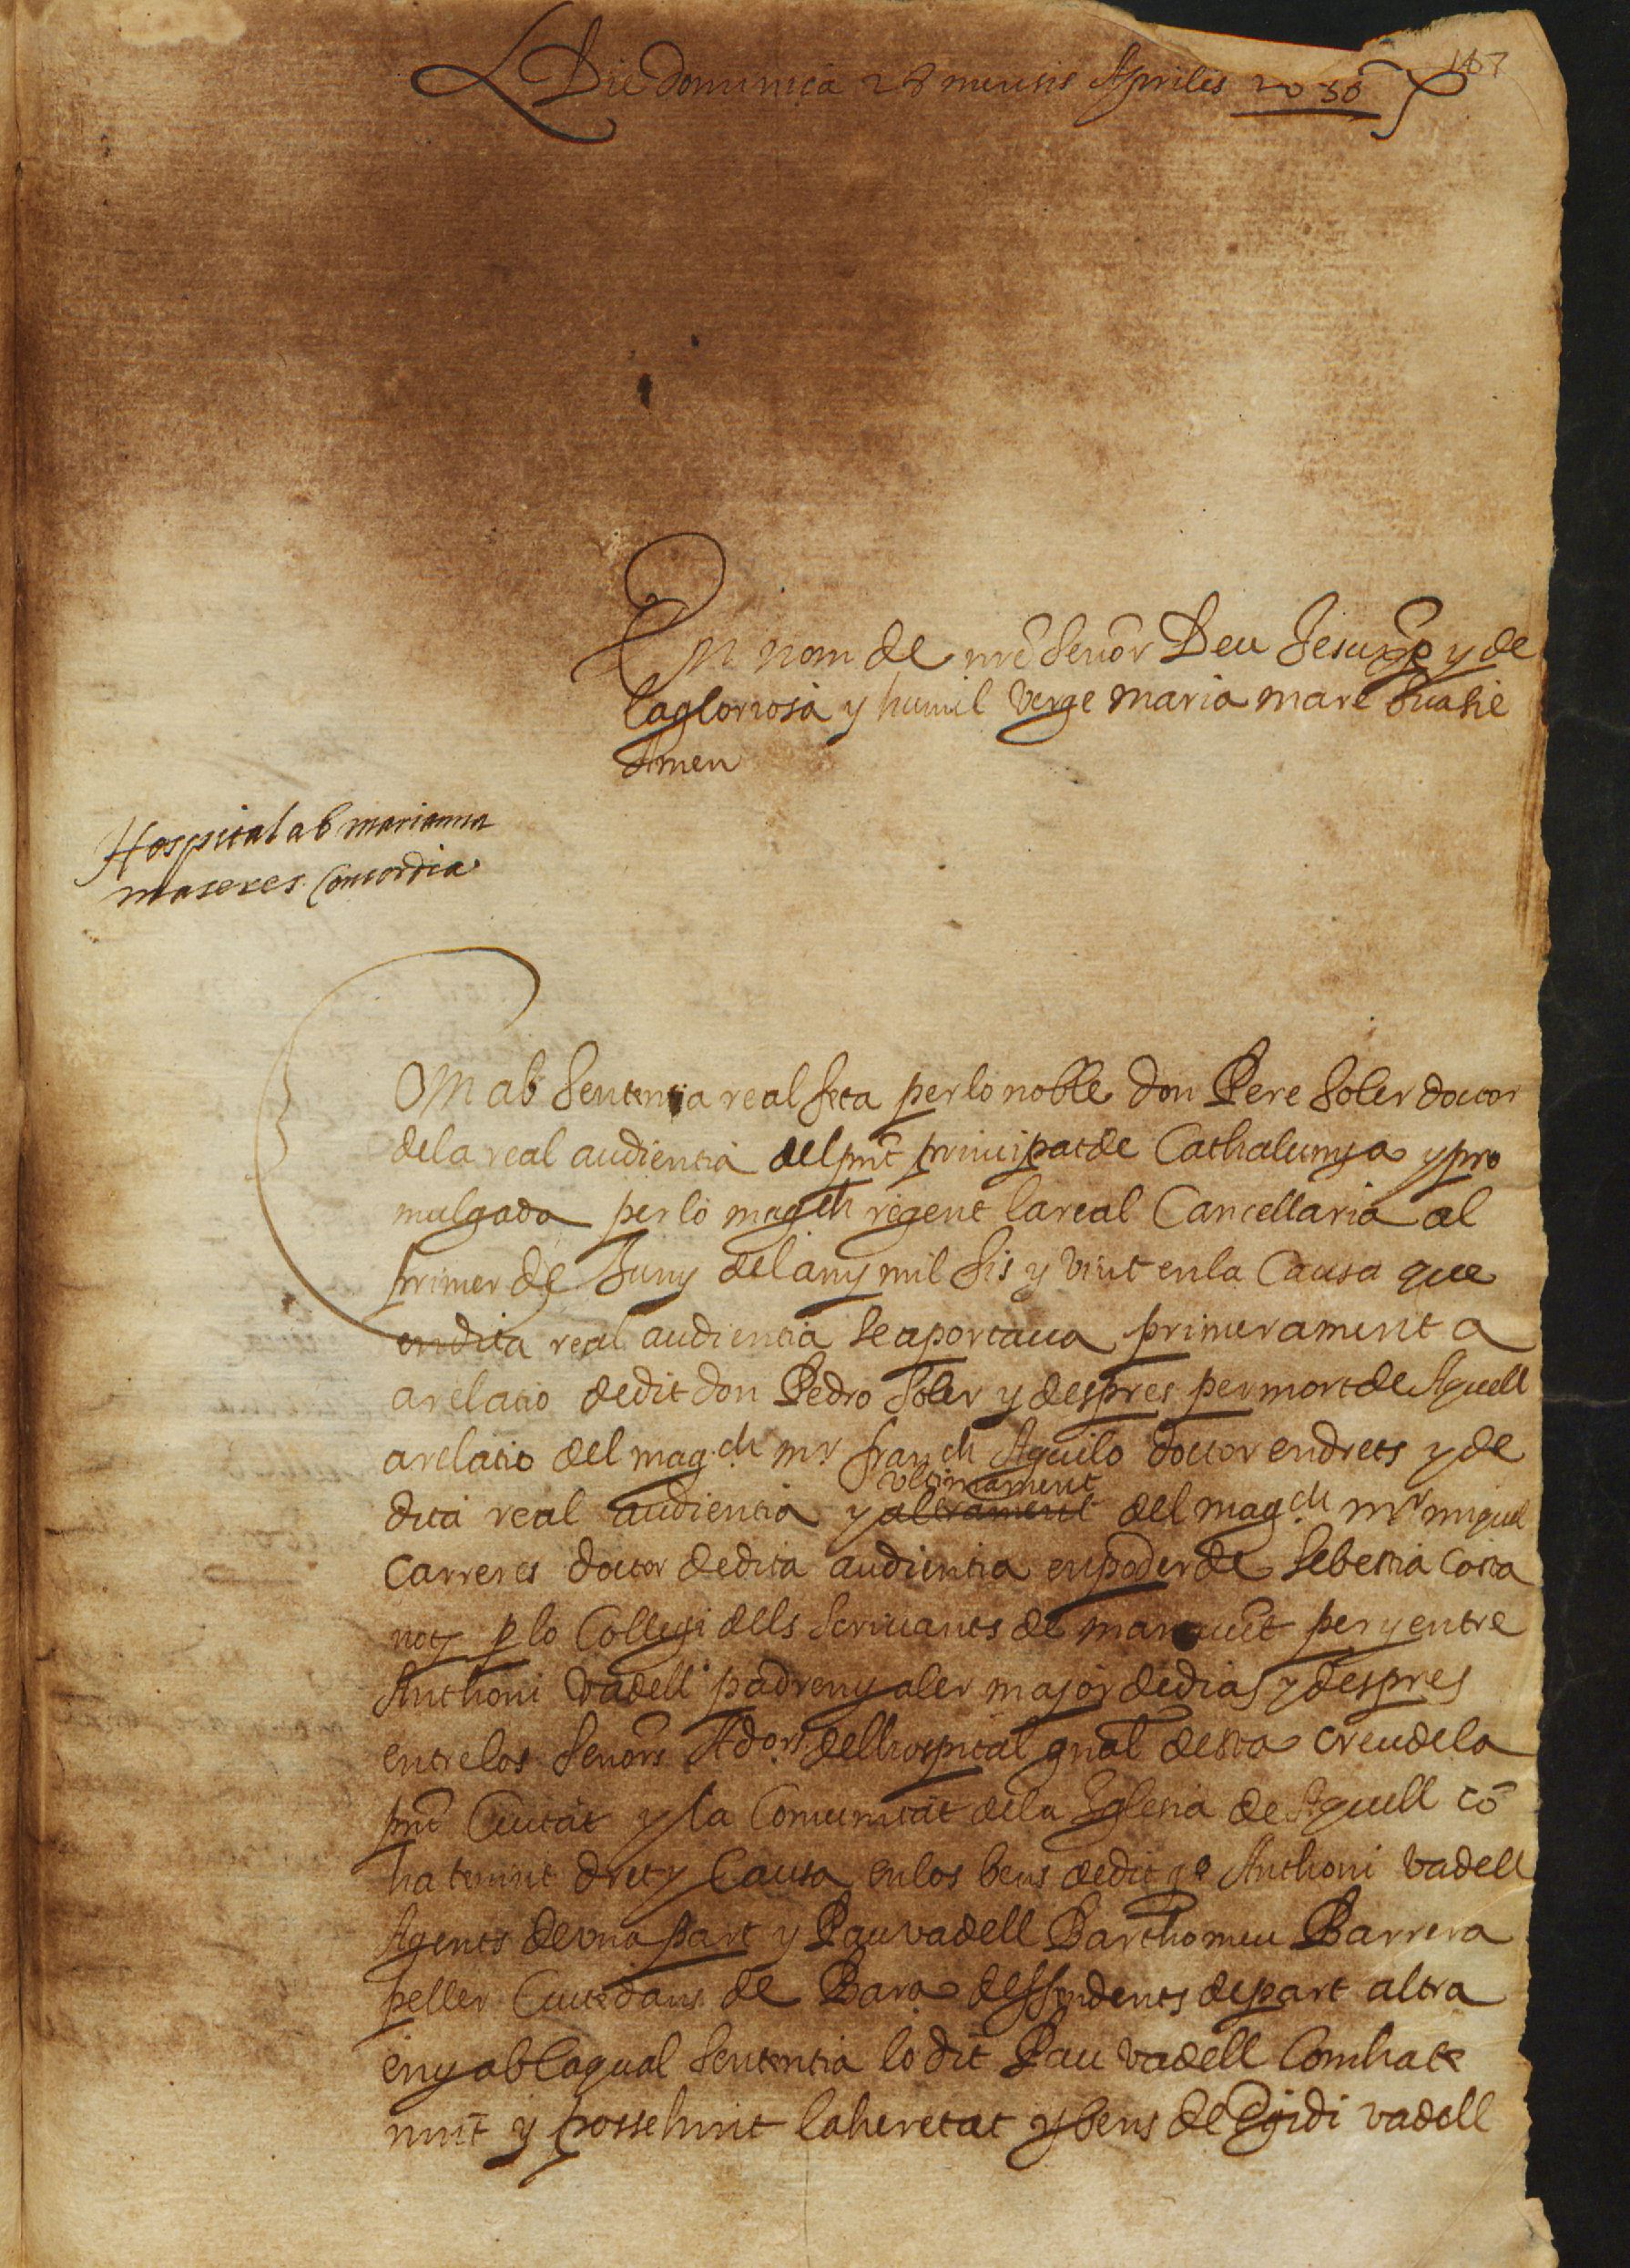 Die dominica 28 mensis Aprilis
En nom de nre Senor Deu Jesuxpo y de
la gloriosa y humil Verge maria mare sua
Amen
Hospital ab marianna
maseres Concordia
Om ab Sententia real feta per lo noble don Pere Soler doctor
de la real audientia del pnt principat de Cathalunya y pro
mulgada per lo magch regent la real Cancellaria al
primer de Juny del any mil sis y vint en la Causa que
en dita real audientia se aportaua primerament a
a relatio de dit don Pedro Soler y despres per mort de Aquell
a relatio del mag.ch mr franch Aguilo doctor en drets y de
dita real audientia y altrament ultimament del mag.ch mr miquel
Carreres doctor de dita audientia en poder de Sebestia Costa
noty p lo Collegi dels Scriuants de manament per y entre
Anthoni Vadell padreny aler major de dias y despres
entre los Senors Ad.ors del hospital gnal de sta creu de la
pnt Ciutat y la Comunitat de la Iglesia de Aquell co
ha tenint dret y Causa en los bens de dit qo Anthoni Vadell
Agents de una part y Pau vadell Barthomeu Barrera
peller Ciutedans de Bara deffendents de part altra
en y ab la qual Sententia lo dit Pau Vadell Com hate
nint y possehint la heretat y bens de Egidi vadell